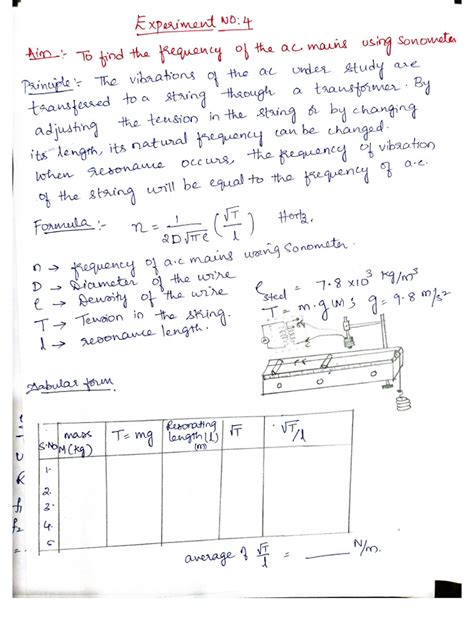 Experiment NO: 4
Aim :- To find the frequency of the ac mains using Sonometer
Principle :- The vibrations of the ac under study are
transferred to a string through a transformer. By
adjusting the tension in the string or by changing
its length, its natural frequency can be changed.
When resonance occurs, the frequency of vibration
of the string will be equal to the frequency of a.c.
Formula :- n = 1/2D√πρ (√T/l) Hertz.
n → frequency of a.c mains using Sonometer.
D → Diameter of the wire
ρ → Density of the wire
T → Tension in the string.
l → resonance length.
ρ steel = 7.8 x10³ kg/m³
T = m.g (N); g = 9.8 m/s²
Tabular form
S.No
mass M(kg)
T = mg
Resonating length (l) (m)
√T
√T/l
1.
2.
3.
4.
5
average of √T/l = ____ N/m.